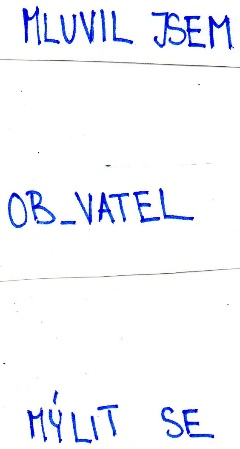 MLUVIL JSEM
OB_VATEL
MÝLIT SE